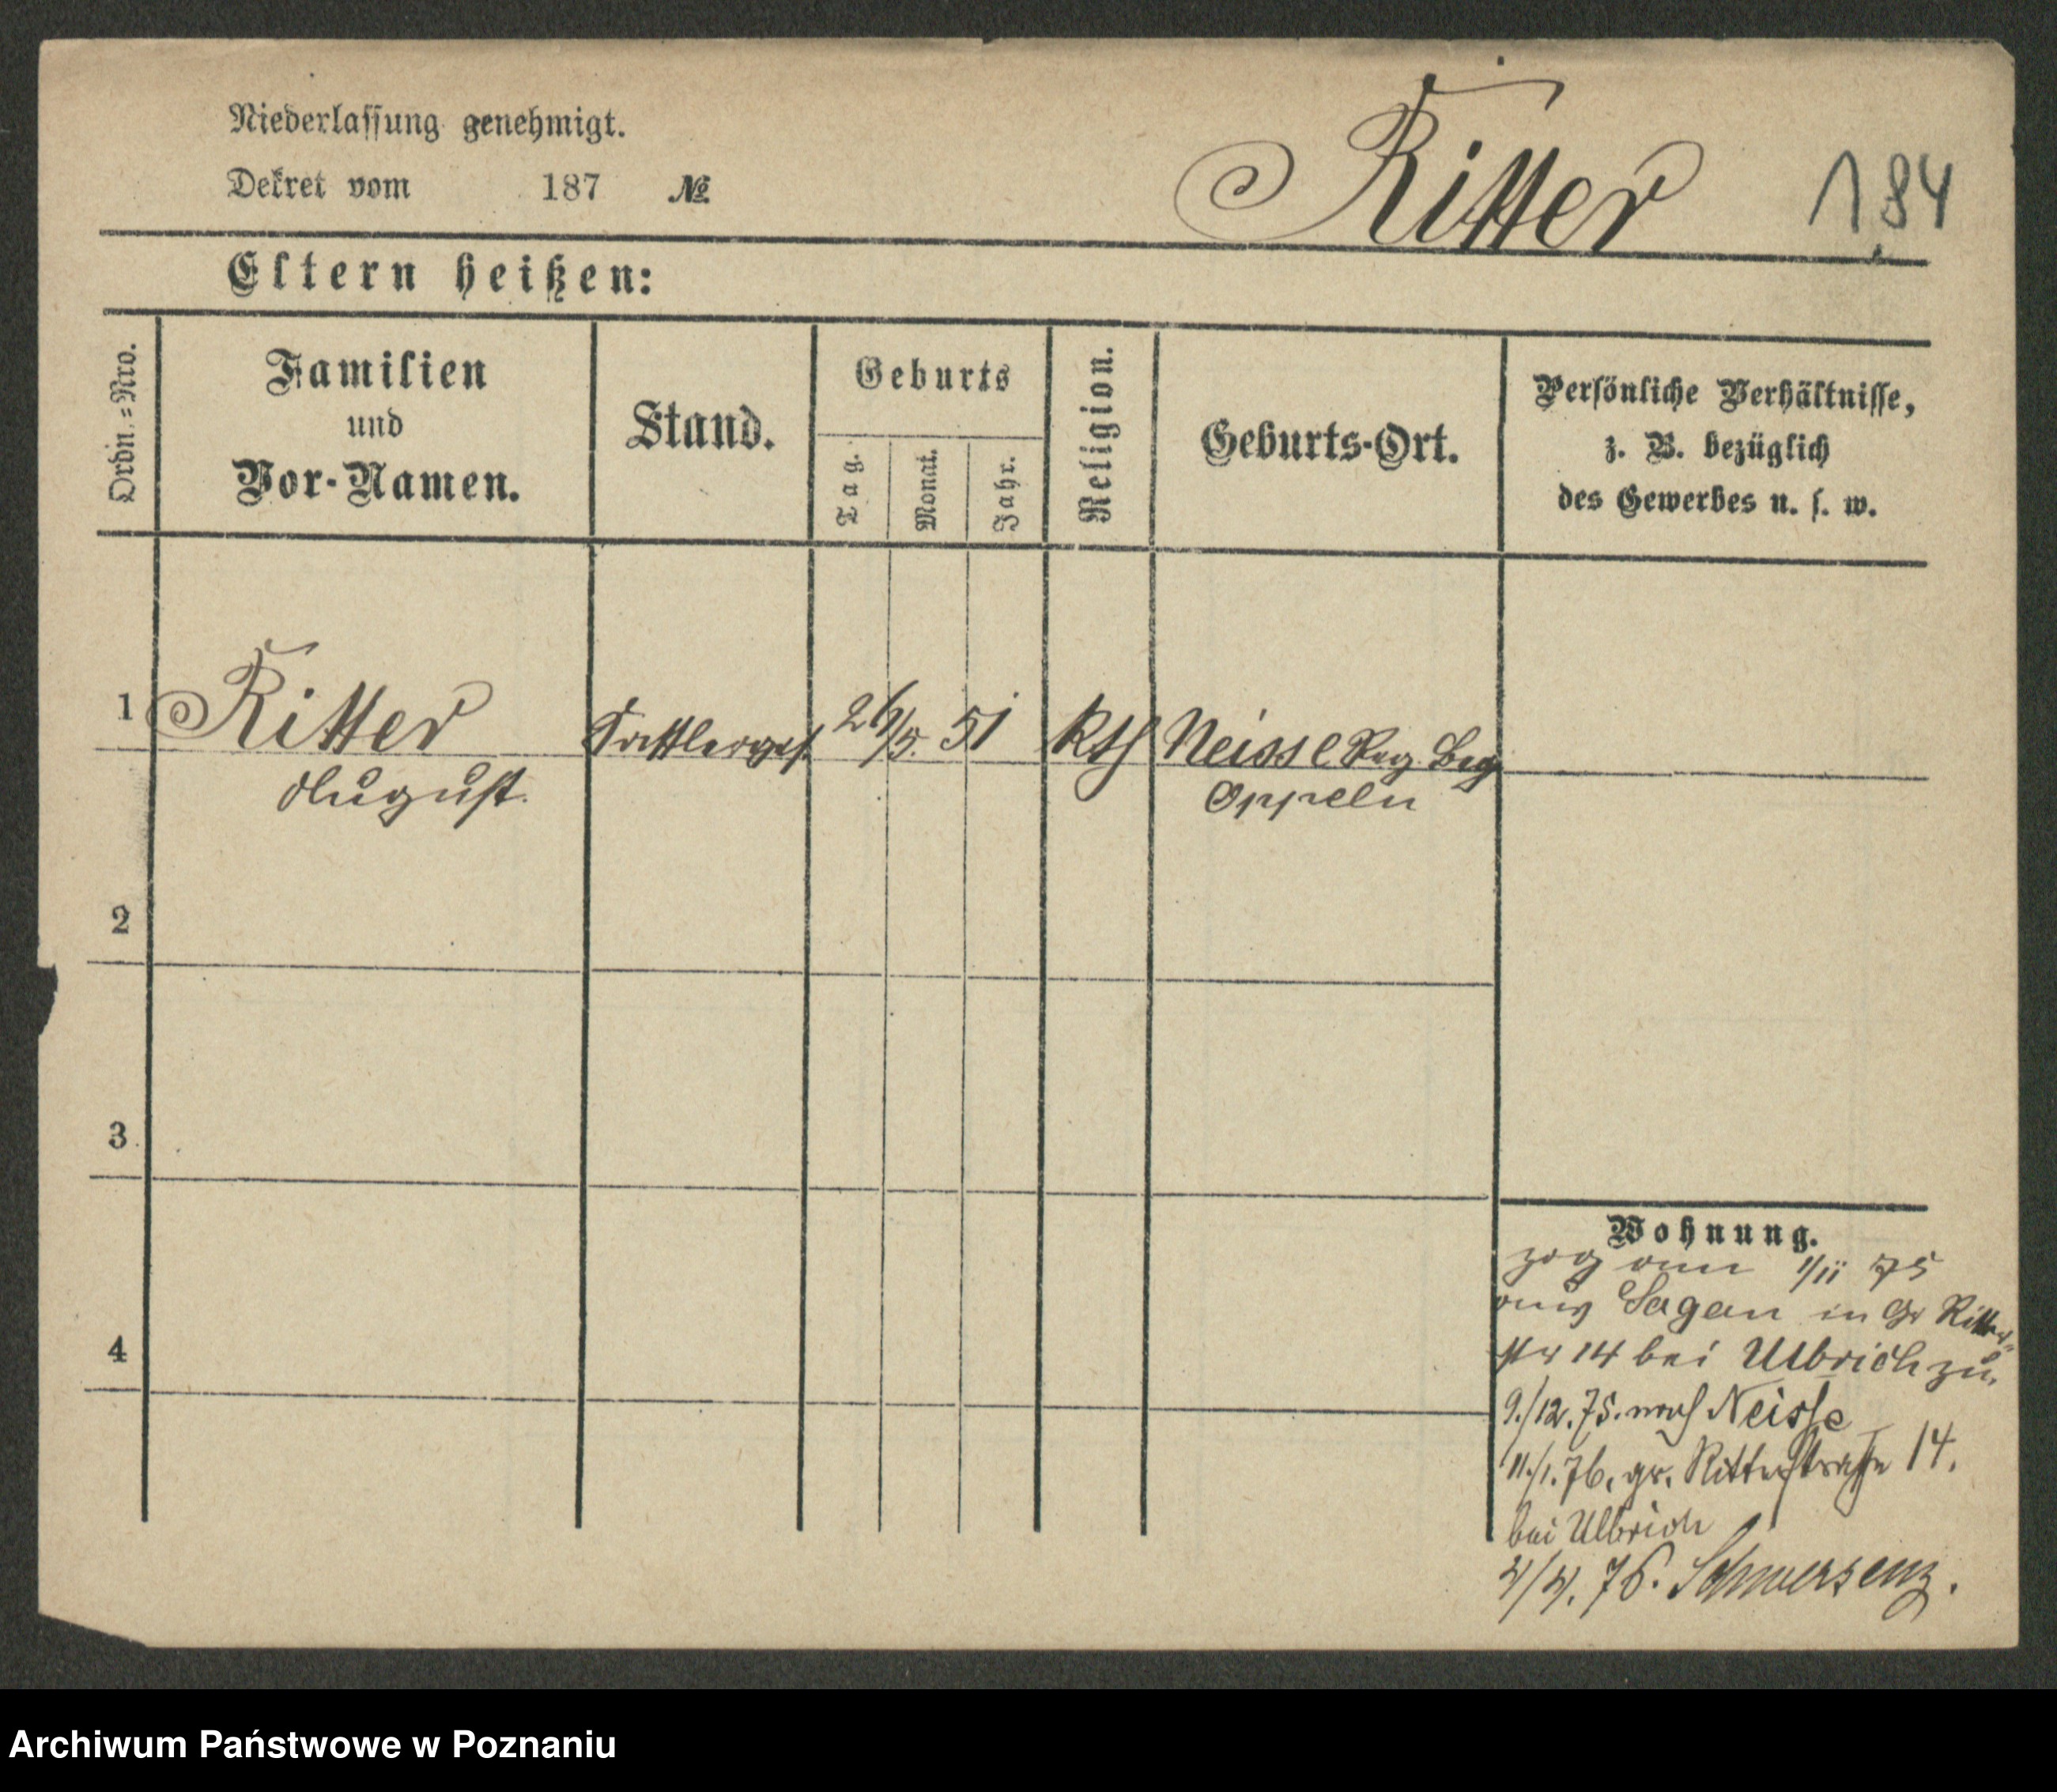 Niederlassung genehmigt.
Dekret vom 187 №
Ritter 184
Eltern heißen:
Ordn.=Nro.
Familien
und
Vor-Namen.
Stand.
Geburts
Tag.
Monat.
Jahr.
Religion.
Geburts-Ort.
Persönliche Verhältnisse,
z. B. bezüglich
des Gewerbes u. s. w.
1 Ritter Sattlerges. 51 Kth Neisse Reg. Bez
August. Oppeln
2
3
4
Wohnung.
zog am 1/11 75
aus Sagan in Gr Ritter-
str 14 bei Ulbrich zu.
9./12.75. nach Neisse
11./1.76. gr. Ritterstraße 14.
bei Ulbrich
4/4.76. Schwersenz.
Archiwum Państwowe w Poznaniu